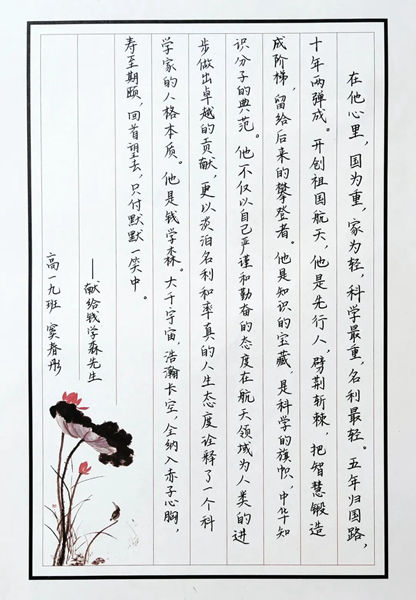 在他心里，国为重，家为轻，科学最重，名利最轻。五年归国路，
十年两弹成。开创祖国航天，他是先行人，劈荆斩棘，把智慧锻造
成阶梯，留给后来的攀登者。他是知识的宝藏，是科学的旗帜，中华知
识分子的典范。他不仅以自己严谨和勤奋的态度在航天领域为人类的进
步做出卓越的贡献，更以淡泊名利和率真的人生态度诠释了一个科
学家的人格本质。他是钱学森。大千宇宙，浩瀚长空，全纳入赤子心胸，
寿至期颐，回首望去，只付默默一笑中。
——献给钱学森先生
高一九班 窦春彤